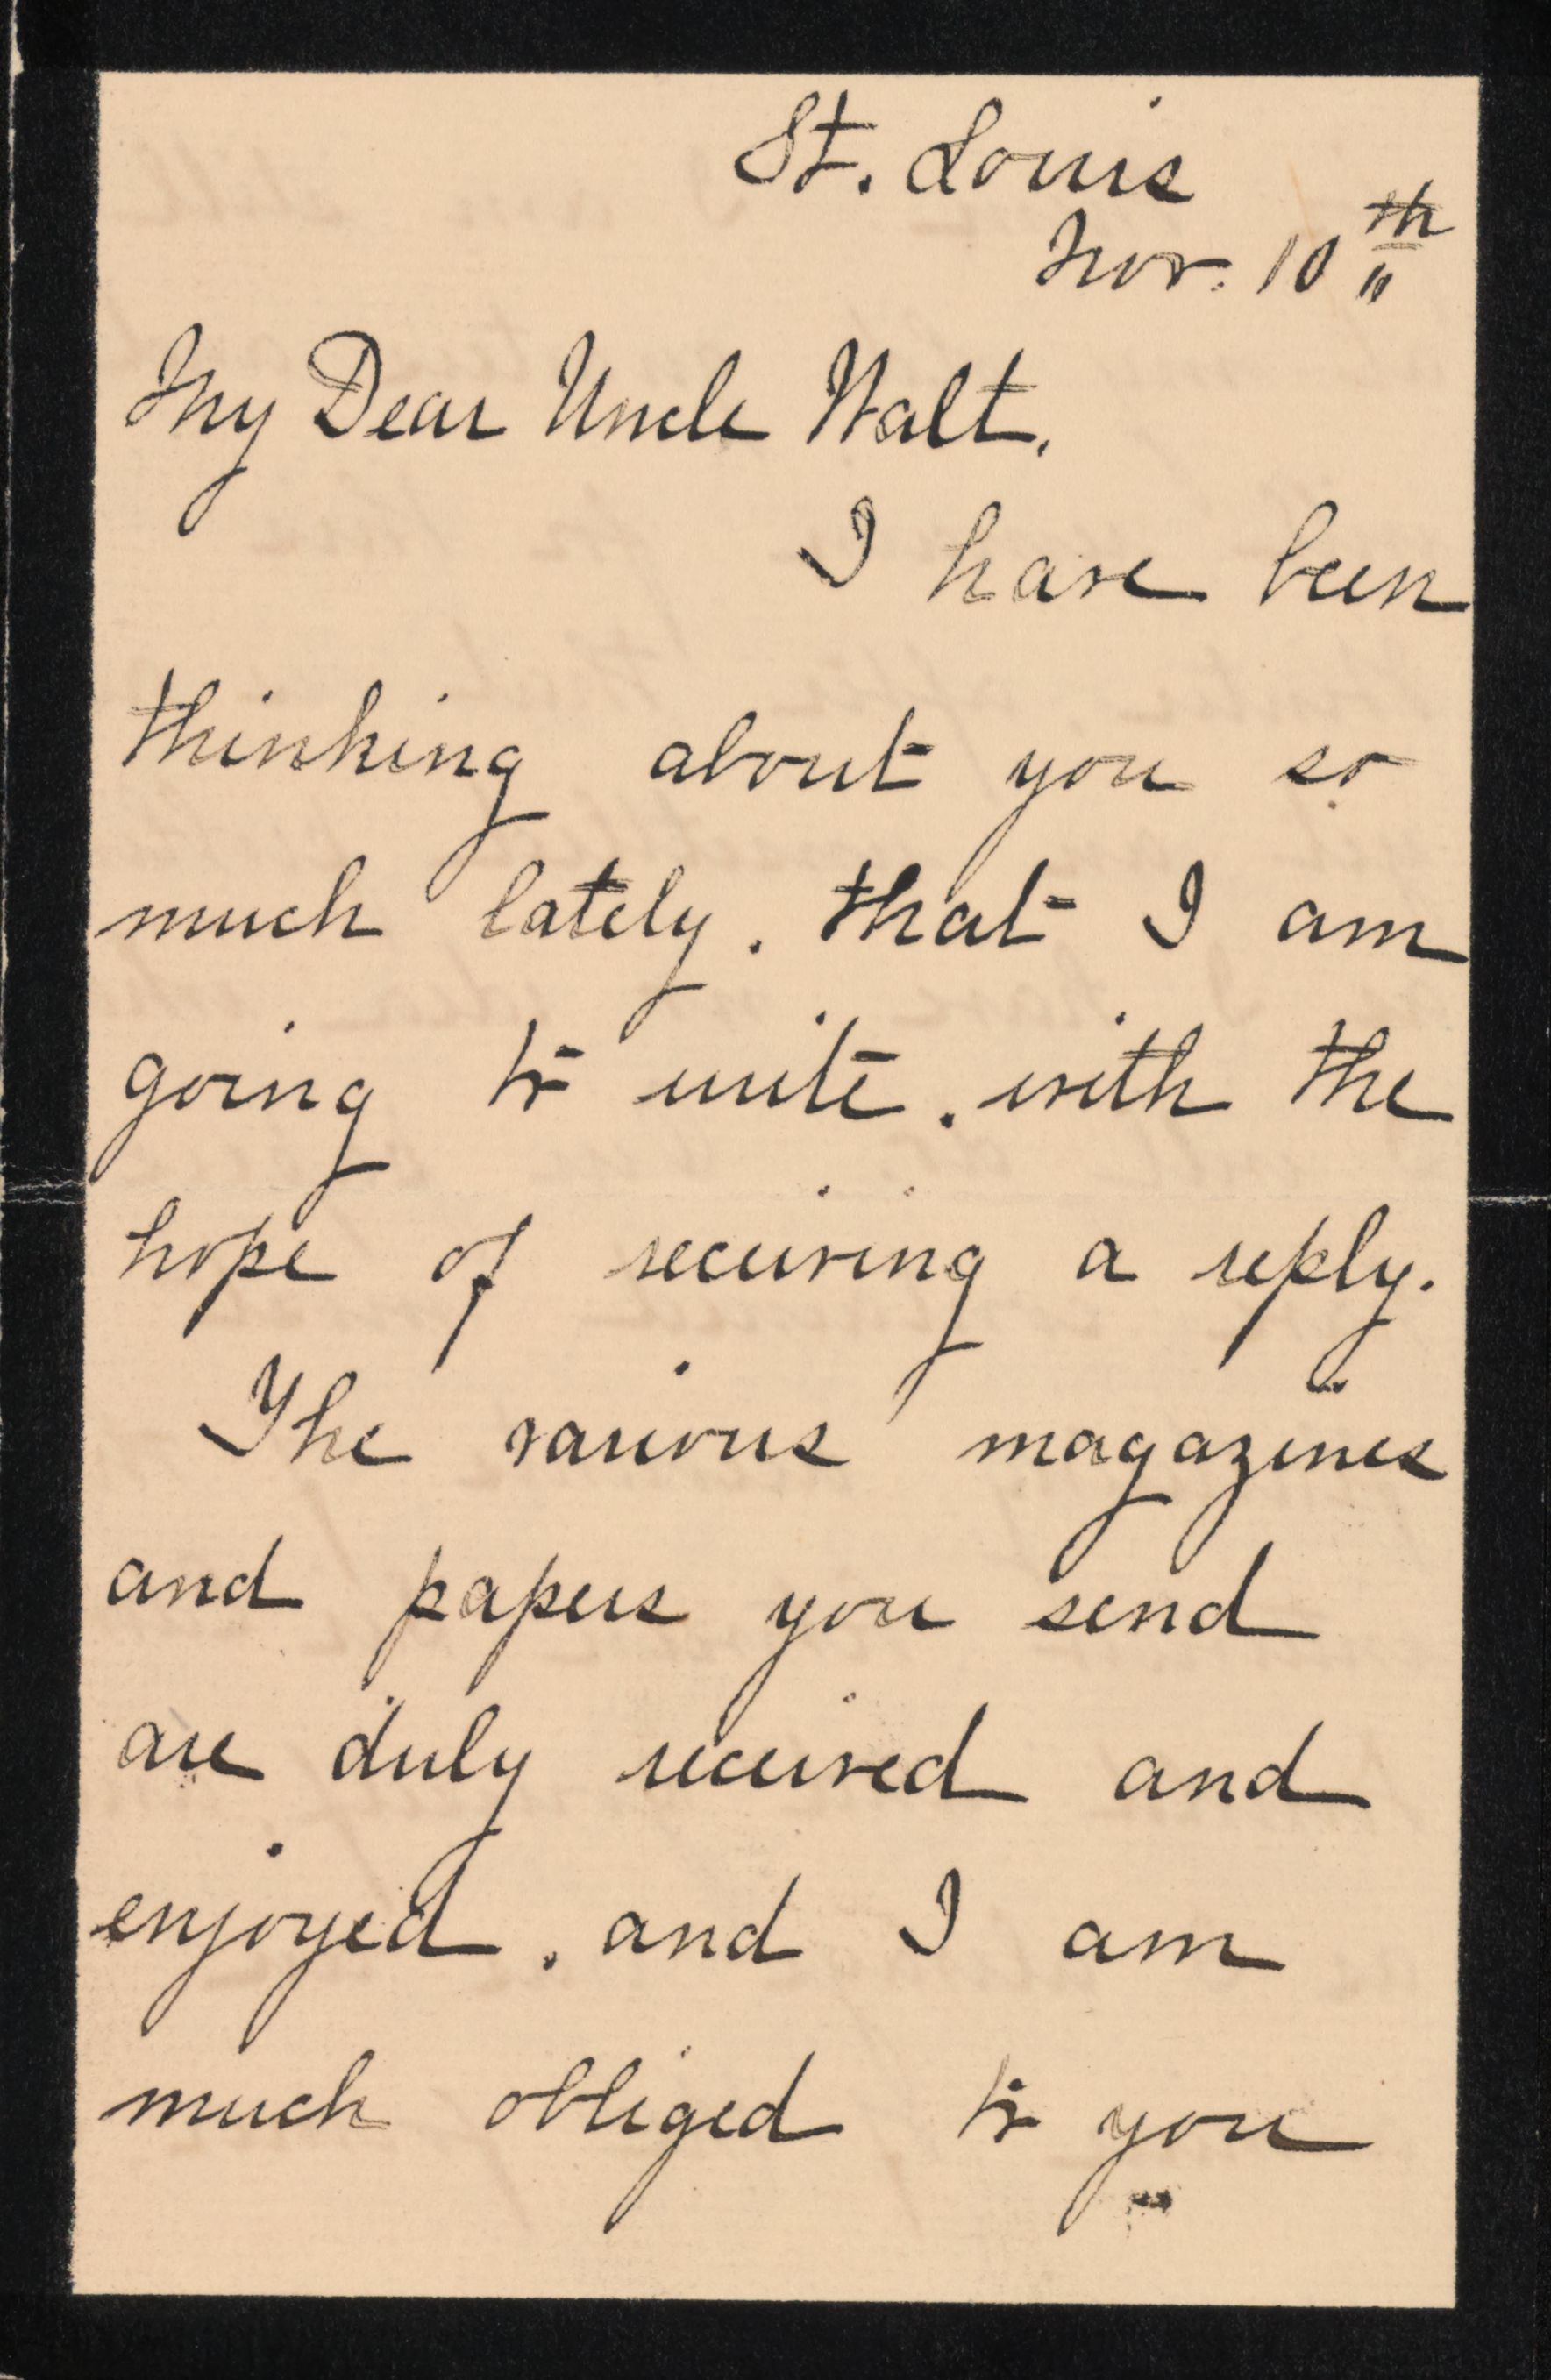 St. Louis
Nov. 10th
My Dear Uncle Walt.
I have been
thinking about you so
much lately. that I am
going to write. with the
hope of receiving a reply.
The various magazines
and papers you send
are duly received and
enjoyed. and I am
much obliged to you